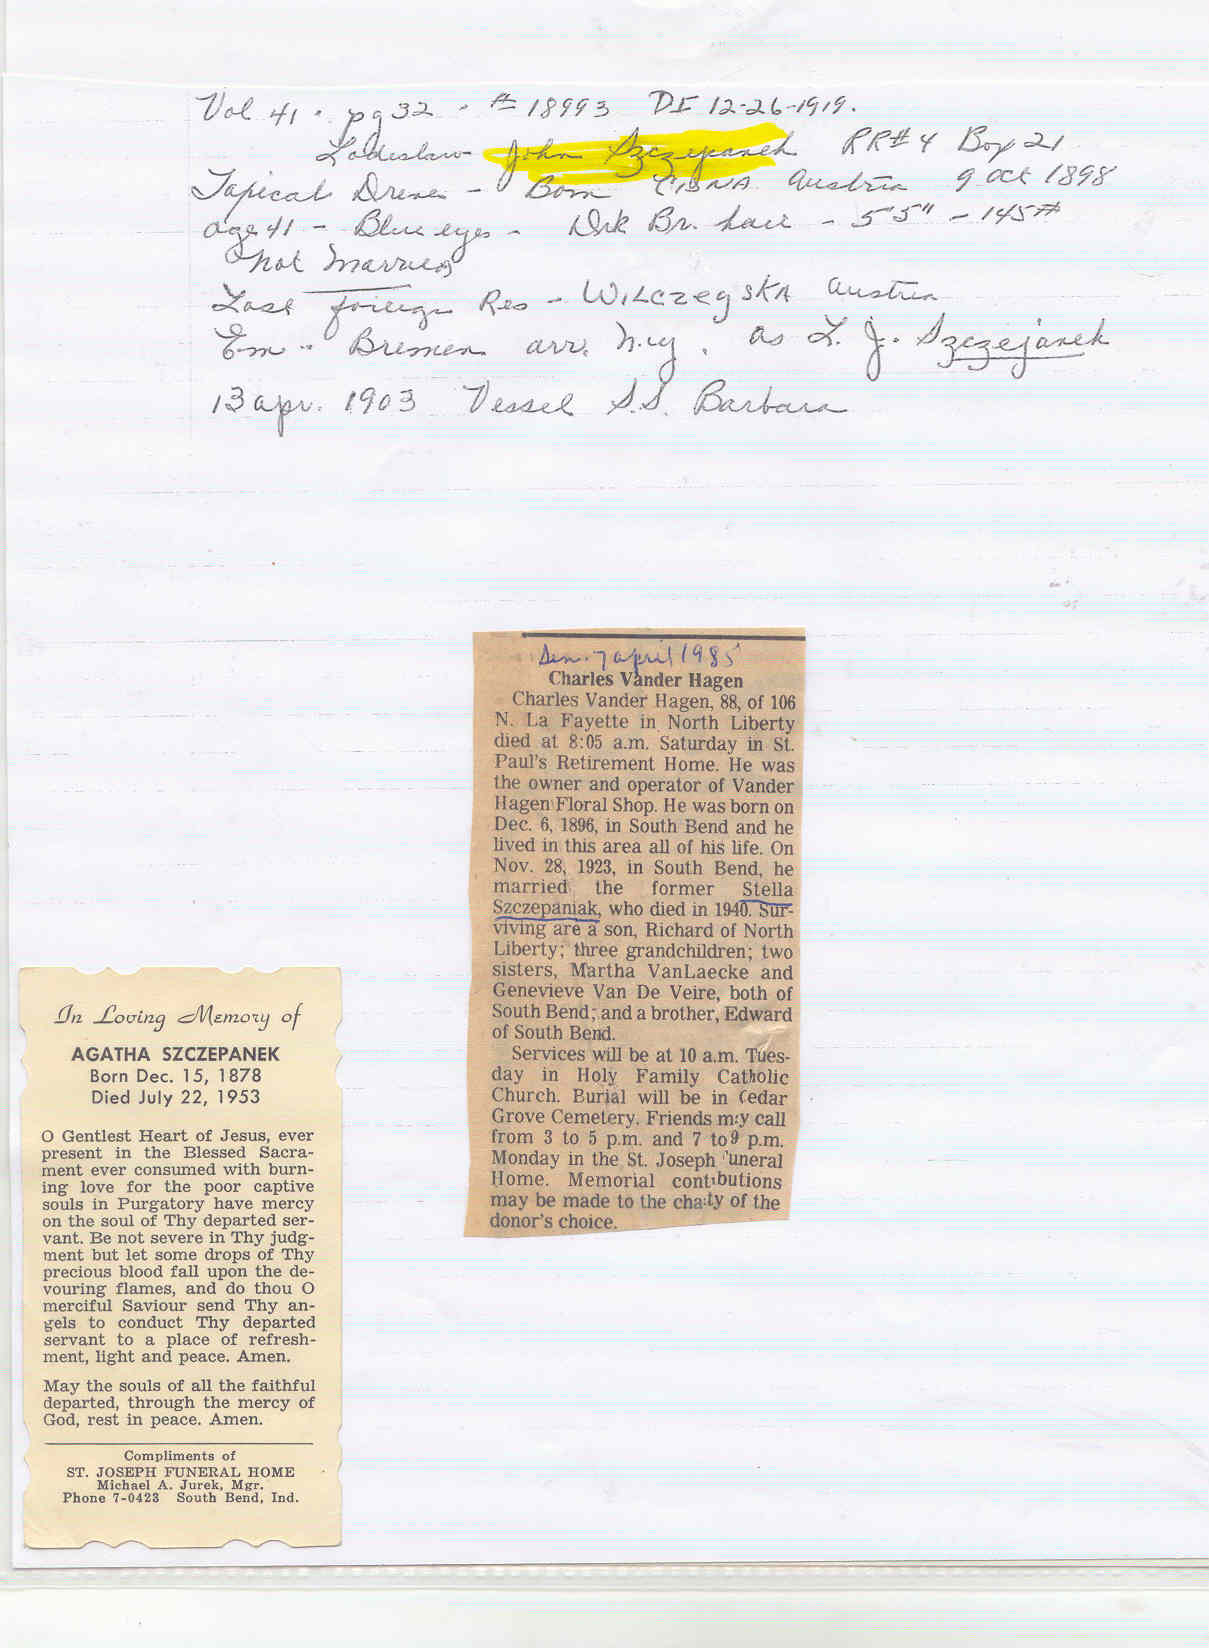 Vol 41 · pg 32 · # 18993 DI 12-26-1919.
Ladeslaw John Szczepaneh RR#4 Box 21
Born Austria 9 Oct 1898
age 41 - Blue eyes - Drk Br. hair - 5'5" - 145#
not Married
Last foreign Res - WILCZEgSKA Austria
Em - Bremen arr. N.y. as L. J. Szczejaneh
13 apr. 1903 Vessel S.S. Barbara
7 april 1985
Charles Vander Hagen
Charles Vander Hagen, 88, of 106
N. La Fayette in North Liberty
died at 8:05 a.m. Saturday in St.
Paul's Retirement Home. He was
the owner and operator of Vander
Hagen Floral Shop. He was born on
Dec. 6, 1896, in South Bend and he
lived in this area all of his life. On
Nov. 28, 1923, in South Bend, he
married the former Stella
Szczepaniak, who died in 1940. Sur-
viving are a son, Richard of North
Liberty; three grandchildren; two
sisters, Martha VanLaecke and
Genevieve Van De Veire, both of
South Bend; and a brother, Edward
of South Bend.
Services will be at 10 a.m. Tues-
day in Holy Family Catholic
Church. Burial will be in Cedar
Grove Cemetery. Friends may call
from 3 to 5 p.m. and 7 to 9 p.m.
Monday in the St. Joseph Funeral
Home. Memorial contributions
may be made to the charity of the
donor's choice.
In Loving Memory of
AGATHA SZCZEPANEK
Born Dec. 15, 1878
Died July 22, 1953
O Gentlest Heart of Jesus, ever
present in the Blessed Sacra-
ment ever consumed with burn-
ing love for the poor captive
souls in Purgatory have mercy
on the soul of Thy departed ser-
vant. Be not severe in Thy judg-
ment but let some drops of Thy
precious blood fall upon the de-
vouring flames, and do thou O
merciful Saviour send Thy an-
gels to conduct Thy departed
servant to a place of refresh-
ment, light and peace. Amen.
May the souls of all the faithful
departed, through the mercy of
God, rest in peace. Amen.
Compliments of
ST. JOSEPH FUNERAL HOME
Michael A. Jurek, Mgr.
Phone 7-0423 South Bend, Ind.